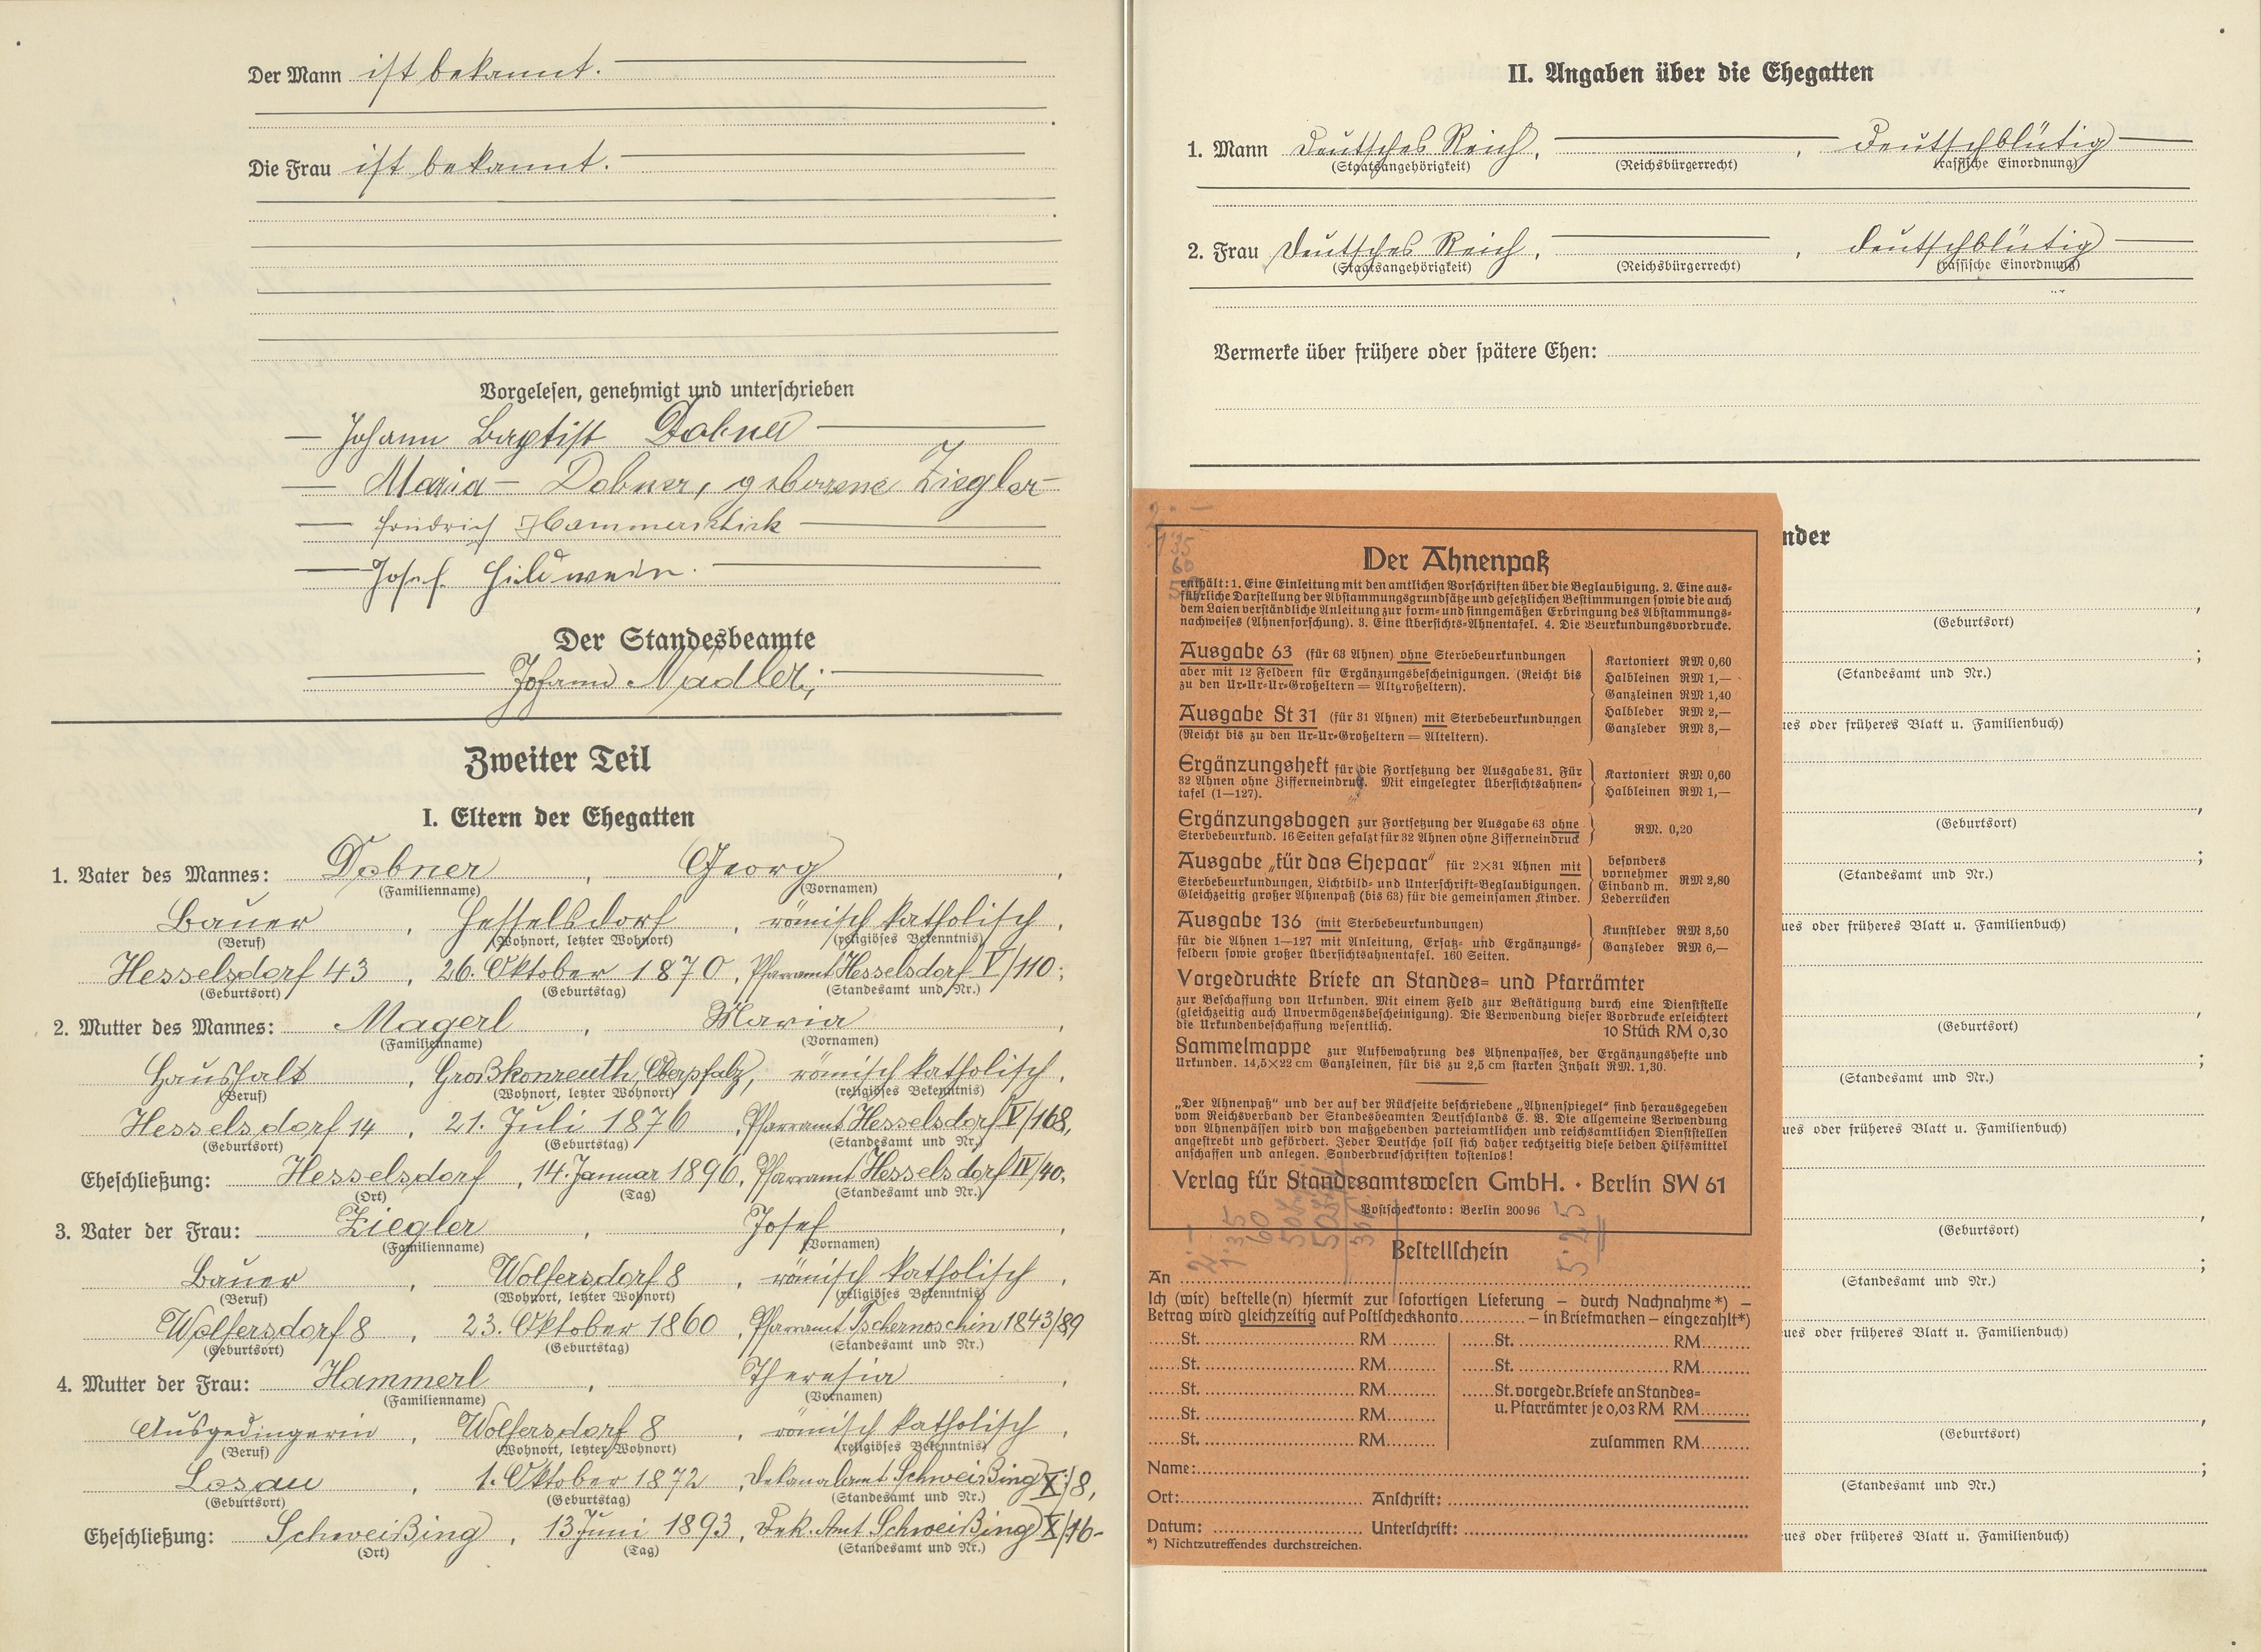 Der Mann ist bekannt.
Die Frau ist bekannt.
Vorgelesen, genehmigt und unterschrieben
Johann Baptist Dobner
Maria Dobner, geborene Ziegler
Friedrich Hammerschick
Josef
Der Standesbeamte
Johann Nädler;
Zweiter Teil
I. Eltern der Ehegatten
1. Vater des Mannes: Dobner, Georg,
(Familienname) (Vornamen)
Bauer, Hesselsdorf, römisch katholisch,
(Beruf) (Wohnort, letzter Wohnort) (religiöses Bekenntnis)
Hesselsdorf 43, 26. Oktober 1870, Pfarramt Hesselsdorf V/110;
(Geburtsort) (Geburtstag) (Standesamt und Nr.)
2. Mutter des Mannes: Magerl, Maria,
(Familienname) (Vornamen)
Haushalt, Großkonreuth, Oberpfalz, römisch katholisch,
(Beruf) (Wohnort, letzter Wohnort) (religiöses Bekenntnis)
Hesselsdorf 14, 21. Juli 1876, Pfarramt Hesselsdorf V/168,
(Geburtsort) (Geburtstag) (Standesamt und Nr.)
Eheschließung: Hesselsdorf, 14. Januar 1896, Pfarramt Hesselsdorf IV/40;
(Ort) (Tag) (Standesamt und Nr.)
3. Vater der Frau: Ziegler, Josef,
(Familienname) (Vornamen)
Bauer, Wolfersdorf 8, römisch katholisch,
(Beruf) (Wohnort, letzter Wohnort) (religiöses Bekenntnis)
Wolfersdorf 8, 23. Oktober 1860, Pfarramt Tschernoschin 1843/89
(Geburtsort) (Geburtstag) (Standesamt und Nr.)
4. Mutter der Frau: Hammerl, Theresia,
(Familienname) (Vornamen)
Ausgedingerin, Wolfersdorf 8, römisch katholisch,
(Beruf) (Wohnort, letzter Wohnort) (religiöses Bekenntnis)
Losau, 1. Oktober 1872, Dekanalamt Schweißing X/8,
(Geburtsort) (Geburtstag) (Standesamt und Nr.)
Eheschließung: Schweißing, 13 Juni 1893, Dek. Amt Schweißing X/16-
(Ort) (Tag) (Standesamt und Nr.)
II. Angaben über die Ehegatten
1. Mann Deutsches Reich, , deutschblütig
(Staatsangehörigkeit) (Reichsbürgerrecht) (rassische Einordnung)
2. Frau Deutsches Reich, , deutschblütig
(Staatsangehörigkeit) (Reichsbürgerrecht) (rassische Einordnung)
Vermerke über frühere oder spätere Ehen:
nder
Der Ahnenpaß
enthält: 1. Eine Einleitung mit den amtlichen Vorschriften über die Beglaubigung. 2. Eine aus-
führliche Darstellung der Abstammungsgrundsätze und gesetzlichen Bestimmungen sowie die auch
dem Laien verständliche Anleitung zur form- und sinngemäßen Erbringung des Abstammungs-
nachweises (Ahnenforschung). 3. Eine Übersichts-Ahnentafel. 4. Die Beurkundungsvordrucke.
Ausgabe 63 (für 63 Ahnen) ohne Sterbebeurkundungen
aber mit 12 Feldern für Ergänzungsbescheinigungen. (Reicht bis
zu den Ur-Ur-Ur-Großeltern = Altgroßeltern).
Ausgabe St 31 (für 31 Ahnen) mit Sterbebeurkundungen
(Reicht bis zu den Ur-Ur-Großeltern = Alteltern).
Kartoniert RM 0,60
Halbleinen RM 1,—
Ganzleinen RM 1,40
Halbleder RM 2,—
Ganzleder RM 3,—
Ergänzungsheft für die Fortsetzung der Ausgabe 31. Für
32 Ahnen ohne Zifferneindruck. Mit eingelegter Übersichtsahnen-
tafel (1—127).
Kartoniert RM 0,60
Halbleinen RM 1,—
Ergänzungsbogen zur Fortsetzung der Ausgabe 63 ohne
Sterbebeurkund. 16 Seiten gefalzt für 32 Ahnen ohne Zifferneindruck
RM. 0,20
Ausgabe „für das Ehepaar" für 2×31 Ahnen mit
Sterbebeurkundungen, Lichtbild- und Unterschrift-Beglaubigungen.
Gleichzeitig großer Ahnenpaß (bis 63) für die gemeinsamen Kinder.
besonders
vornehmer
Einband m. RM 2,80
Lederrücken
Ausgabe 136 (mit Sterbebeurkundungen)
für die Ahnen 1—127 mit Anleitung, Ersatz- und Ergänzungs-
feldern sowie großer Übersichtsahnentafel. 160 Seiten.
Kunstleder RM 3,50
Ganzleder RM 6,—
Vorgedruckte Briefe an Standes- und Pfarrämter
zur Beschaffung von Urkunden. Mit einem Feld zur Bestätigung durch eine Dienststelle
(gleichzeitig auch Unvermögensbescheinigung). Die Verwendung dieser Vordrucke erleichtert
die Urkundenbeschaffung wesentlich. 10 Stück RM 0,30
Sammelmappe zur Aufbewahrung des Ahnenpasses, der Ergänzungshefte und
Urkunden. 14,5×22 cm Ganzleinen, für bis zu 2,5 cm starken Inhalt RM. 1,30.
„Der Ahnenpaß" und der auf der Rückseite beschriebene „Ahnenspiegel" sind herausgegeben
vom Reichsverband der Standesbeamten Deutschlands E. V. Die allgemeine Verwendung
von Ahnenpässen wird von maßgebenden parteiamtlichen und reichsamtlichen Dienststellen
angestrebt und gefördert. Jeder Deutsche soll sich daher rechtzeitig diese beiden Hilfsmittel
anschaffen und anlegen. Sonderdruckschriften kostenlos!
Verlag für Standesamtswesen GmbH. · Berlin SW 61
Postscheckkonto: Berlin 200 96
Bestellschein
An
Ich (wir) bestelle(n) hiermit zur sofortigen Lieferung – durch Nachnahme*) –
Betrag wird gleichzeitig auf Postscheckkonto – in Briefmarken – eingezahlt*)
St. RM St. RM
St. RM St. RM
St. RM St. vorgedr. Briefe an Standes-
St. RM u. Pfarrämter je 0,03 RM RM
St. RM zusammen RM
Name:
Ort: Anschrift:
Datum: Unterschrift:
*) Nichtzutreffendes durchstreichen.
(Geburtsort)
(Standesamt und Nr.)
ues oder früheres Blatt u. Familienbuch)
(Geburtsort)
(Standesamt und Nr.)
ues oder früheres Blatt u. Familienbuch)
(Geburtsort)
(Standesamt und Nr.)
ues oder früheres Blatt u. Familienbuch)
(Geburtsort)
(Standesamt und Nr.)
ues oder früheres Blatt u. Familienbuch)
(Geburtsort)
(Standesamt und Nr.)
ues oder früheres Blatt u. Familienbuch)